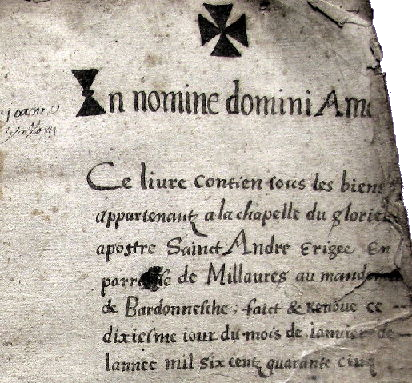 In nomine domini Ame
Ce liure contien tous les biens
appartenantz a la chapelle du glorie
apostre Sainct Andre Erigee En
parr de Millaures au mandem
de Bardonnesche, faict & Renoue ce
dixiesme iour du mois de ianuier de
lannee mil six cent quarante cinq